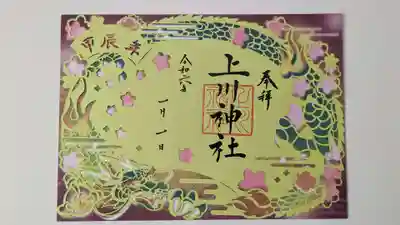 奉拝
上川神社
令和六年
一月一日
甲辰